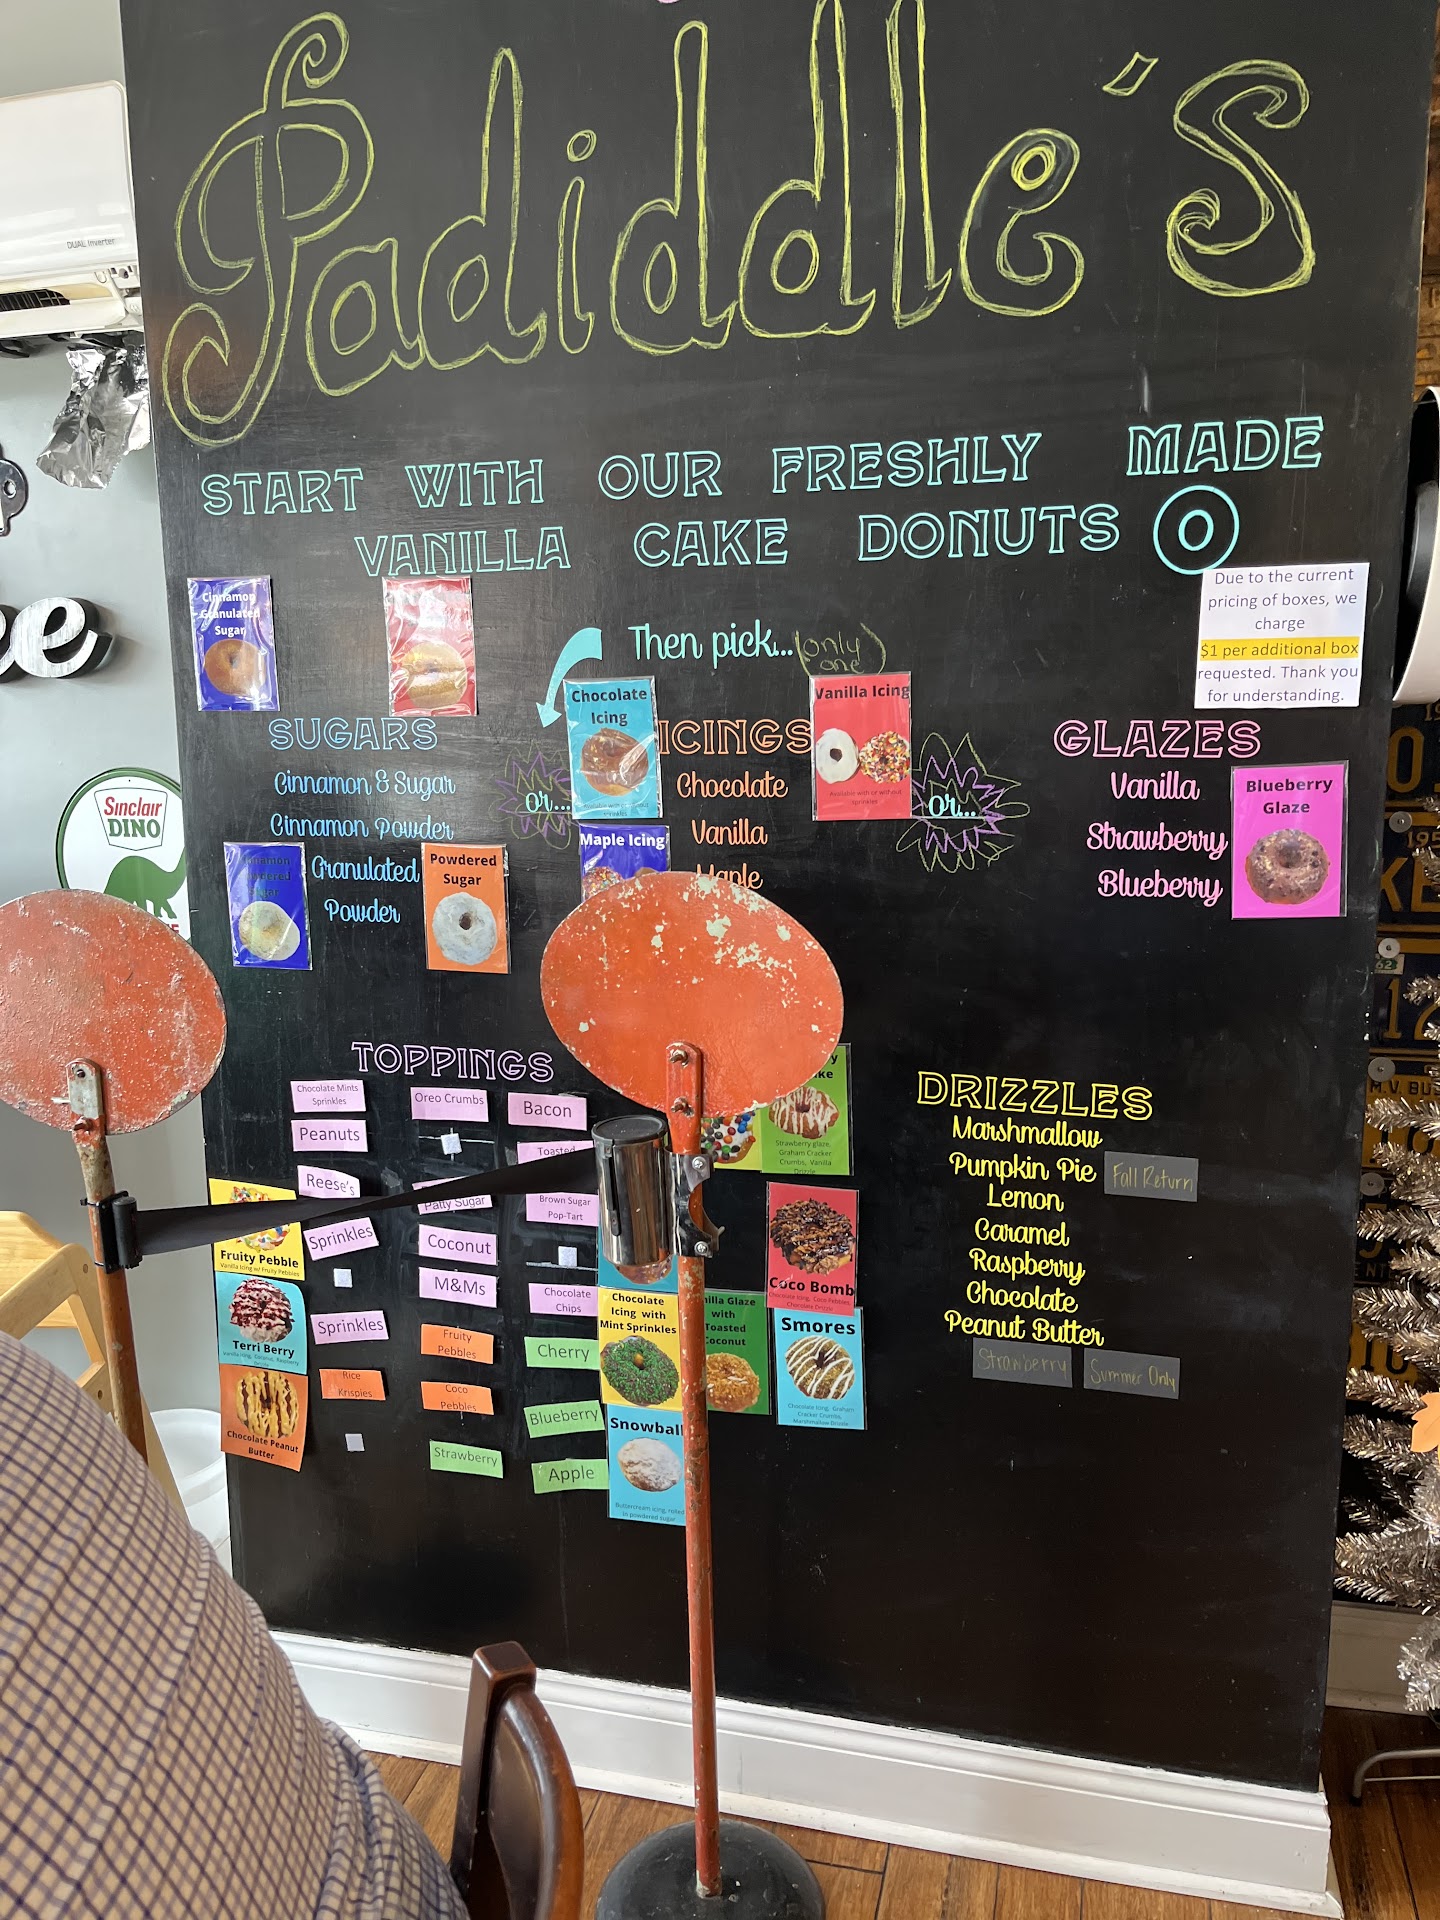 Padiddle's
START WITH OUR FRESHLY MADE
VANILLA CAKE DONUTS
DUAL Inverter
ee
Sinclair
DINO
Cinnamon
Granulated
Sugar
Then pick... (only
one)
Due to the current
pricing of boxes, we
charge
$1 per additional box
requested. Thank you
for understanding.
SUGARS
Cinnamon & Sugar
Cinnamon Powder
Granulated
Powder
Powdered
Sugar
or...
Chocolate
Icing
Available with or without
sprinkles
Maple Icing
ICINGS
Chocolate
Vanilla
Maple
Vanilla Icing
Available with or without
sprinkles
or...
GLAZES
Vanilla
Strawberry
Blueberry
Blueberry
Glaze
TOPPINGS
Chocolate Mints
Sprinkles
Peanuts
Reese's
Sprinkles
Sprinkles
Rice
Krispies
Oreo Crumbs
Patty Sugar
Coconut
M&Ms
Fruity
Pebbles
Coco
Pebbles
Strawberry
Bacon
Toasted
Brown Sugar
Pop-Tart
Chocolate
Chips
Cherry
Blueberry
Apple
Fruity Pebble
Vanilla Icing w/ Fruity Pebbles
Terri Berry
Chocolate Peanut
Butter
Strawberry glaze,
Graham Cracker
Crumbs, Vanilla
Drizzle
Coco Bomb
Chocolate Icing, Coco Pebbles,
Chocolate Drizzle
Chocolate
Icing with
Mint Sprinkles
Glaze
with
Toasted
Coconut
Smores
Chocolate Icing, Graham
Cracker Crumbs,
Marshmallow Drizzle
Snowball
Buttercream icing, rolled
in powdered sugar
DRIZZLES
Marshmallow
Pumpkin Pie Fall Return
Lemon
Caramel
Raspberry
Chocolate
Peanut Butter
Strawberry Summer Only